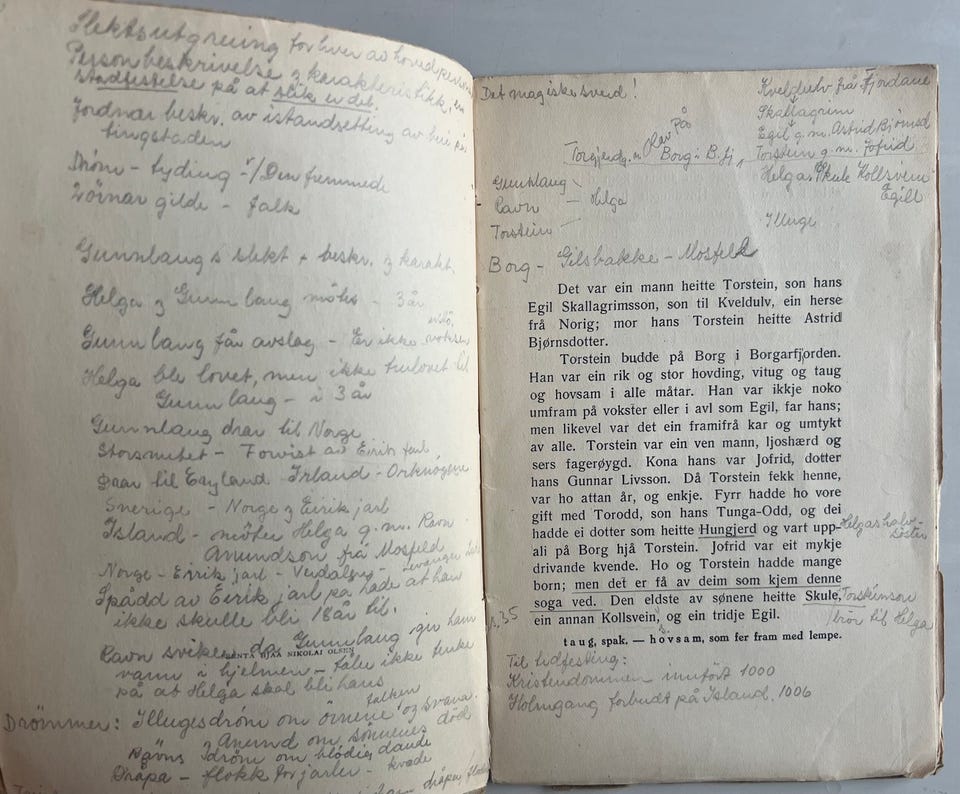 Slektsutgreiing for hver av hovedpersonene
Personbeskrivelse og karakteristikk, en
stadfestelse på at slik er det.
Jordnær beskr. av istandsetting av bui på
tingstaden
Drøm - tyding v/Den fremmede
2 ørnar gilde - falk
Gunnlaugs slekt + beskr. og karakt.
Helga og Gunnlaug møtes - 3 år
Gunnlaug får avslag - Er ikke voksen
Helga ble lovet, men ikke trulovet til
Gunnlaug - i 3 år
Gunnlaug drar til Norge
Storsnutet - Forvist av Eirik jarl
Drar til England Irland - Orknøyene
Sverige - Norge og Eirik jarl
Island - møter Helga g.m. Ravn
Anundson frå Mosfeld
Norge - Eirik jarl - Verdalen - Levanger
Spådd av Eirik jarl på Lade at han
ikke skulle bli 18 år til.
Ravn sviker da Gunnlaug gir ham
NIKOLAI OLSEN
vann i hjelmen - tåler ikke tenke
på at Helga skal bli hans
Drømmer: Illuges drøm om ørnene og svana. falken
og Anund om sønnenes død
Ravns drøm om blodig
Dråpa - flokk for jarler - kvade
Det magiske sverd!
Kveldulv frå Fjordane
Skallagrim
Egil g.m. Astrid Bjørnsd
Torstein g.m. Jofrid
Helga Skule Kollsvein
Egill
Illuge
Torgjerd g.m. Olav På
Borg i B.fj
Gunnlaug
Ravn - Helga
Torstein
Borg - Gilsbakke - Mosfell
Det var ein mann heitte Torstein, son hans
Egil Skallagrimsson, son til Kveldulv, ein herse
frå Norig; mor hans Torstein heitte Astrid
Bjørnsdotter.
Torstein budde på Borg i Borgarfjorden.
Han var ein rik og stor hovding, vitug og taug
og hovsam i alle måtar. Han var ikkje noko
umfram på vokster eller i avl som Egil, far hans;
men likevel var det ein framifrå kar og umtykt
av alle. Torstein var ein ven mann, ljoshærd og
sers fagerøygd. Kona hans var Jofrid, dotter
hans Gunnar Livsson. Då Torstein fekk henne,
var ho attan år, og enkje. Fyrr hadde ho vore
gift med Torodd, son hans Tunga-Odd, og dei
hadde ei dotter som heitte Hungjerd og vart upp-
ali på Borg hjå Torstein. Jofrid var eit mykje
drivande kvende. Ho og Torstein hadde mange
born; men det er få av deim som kjem denne
soga ved. Den eldste av sønene heitte Skule,
ein annan Kollsvein, og ein tridje Egil.
Helgas halv-
søster
Torsteinson
bror til Helga
s. 35
taug, spak. — hovsam, som fer fram med lempe.
Til tidfesting:
Kristendommen innført 1000
Holmgang forbudt på Island. 1006